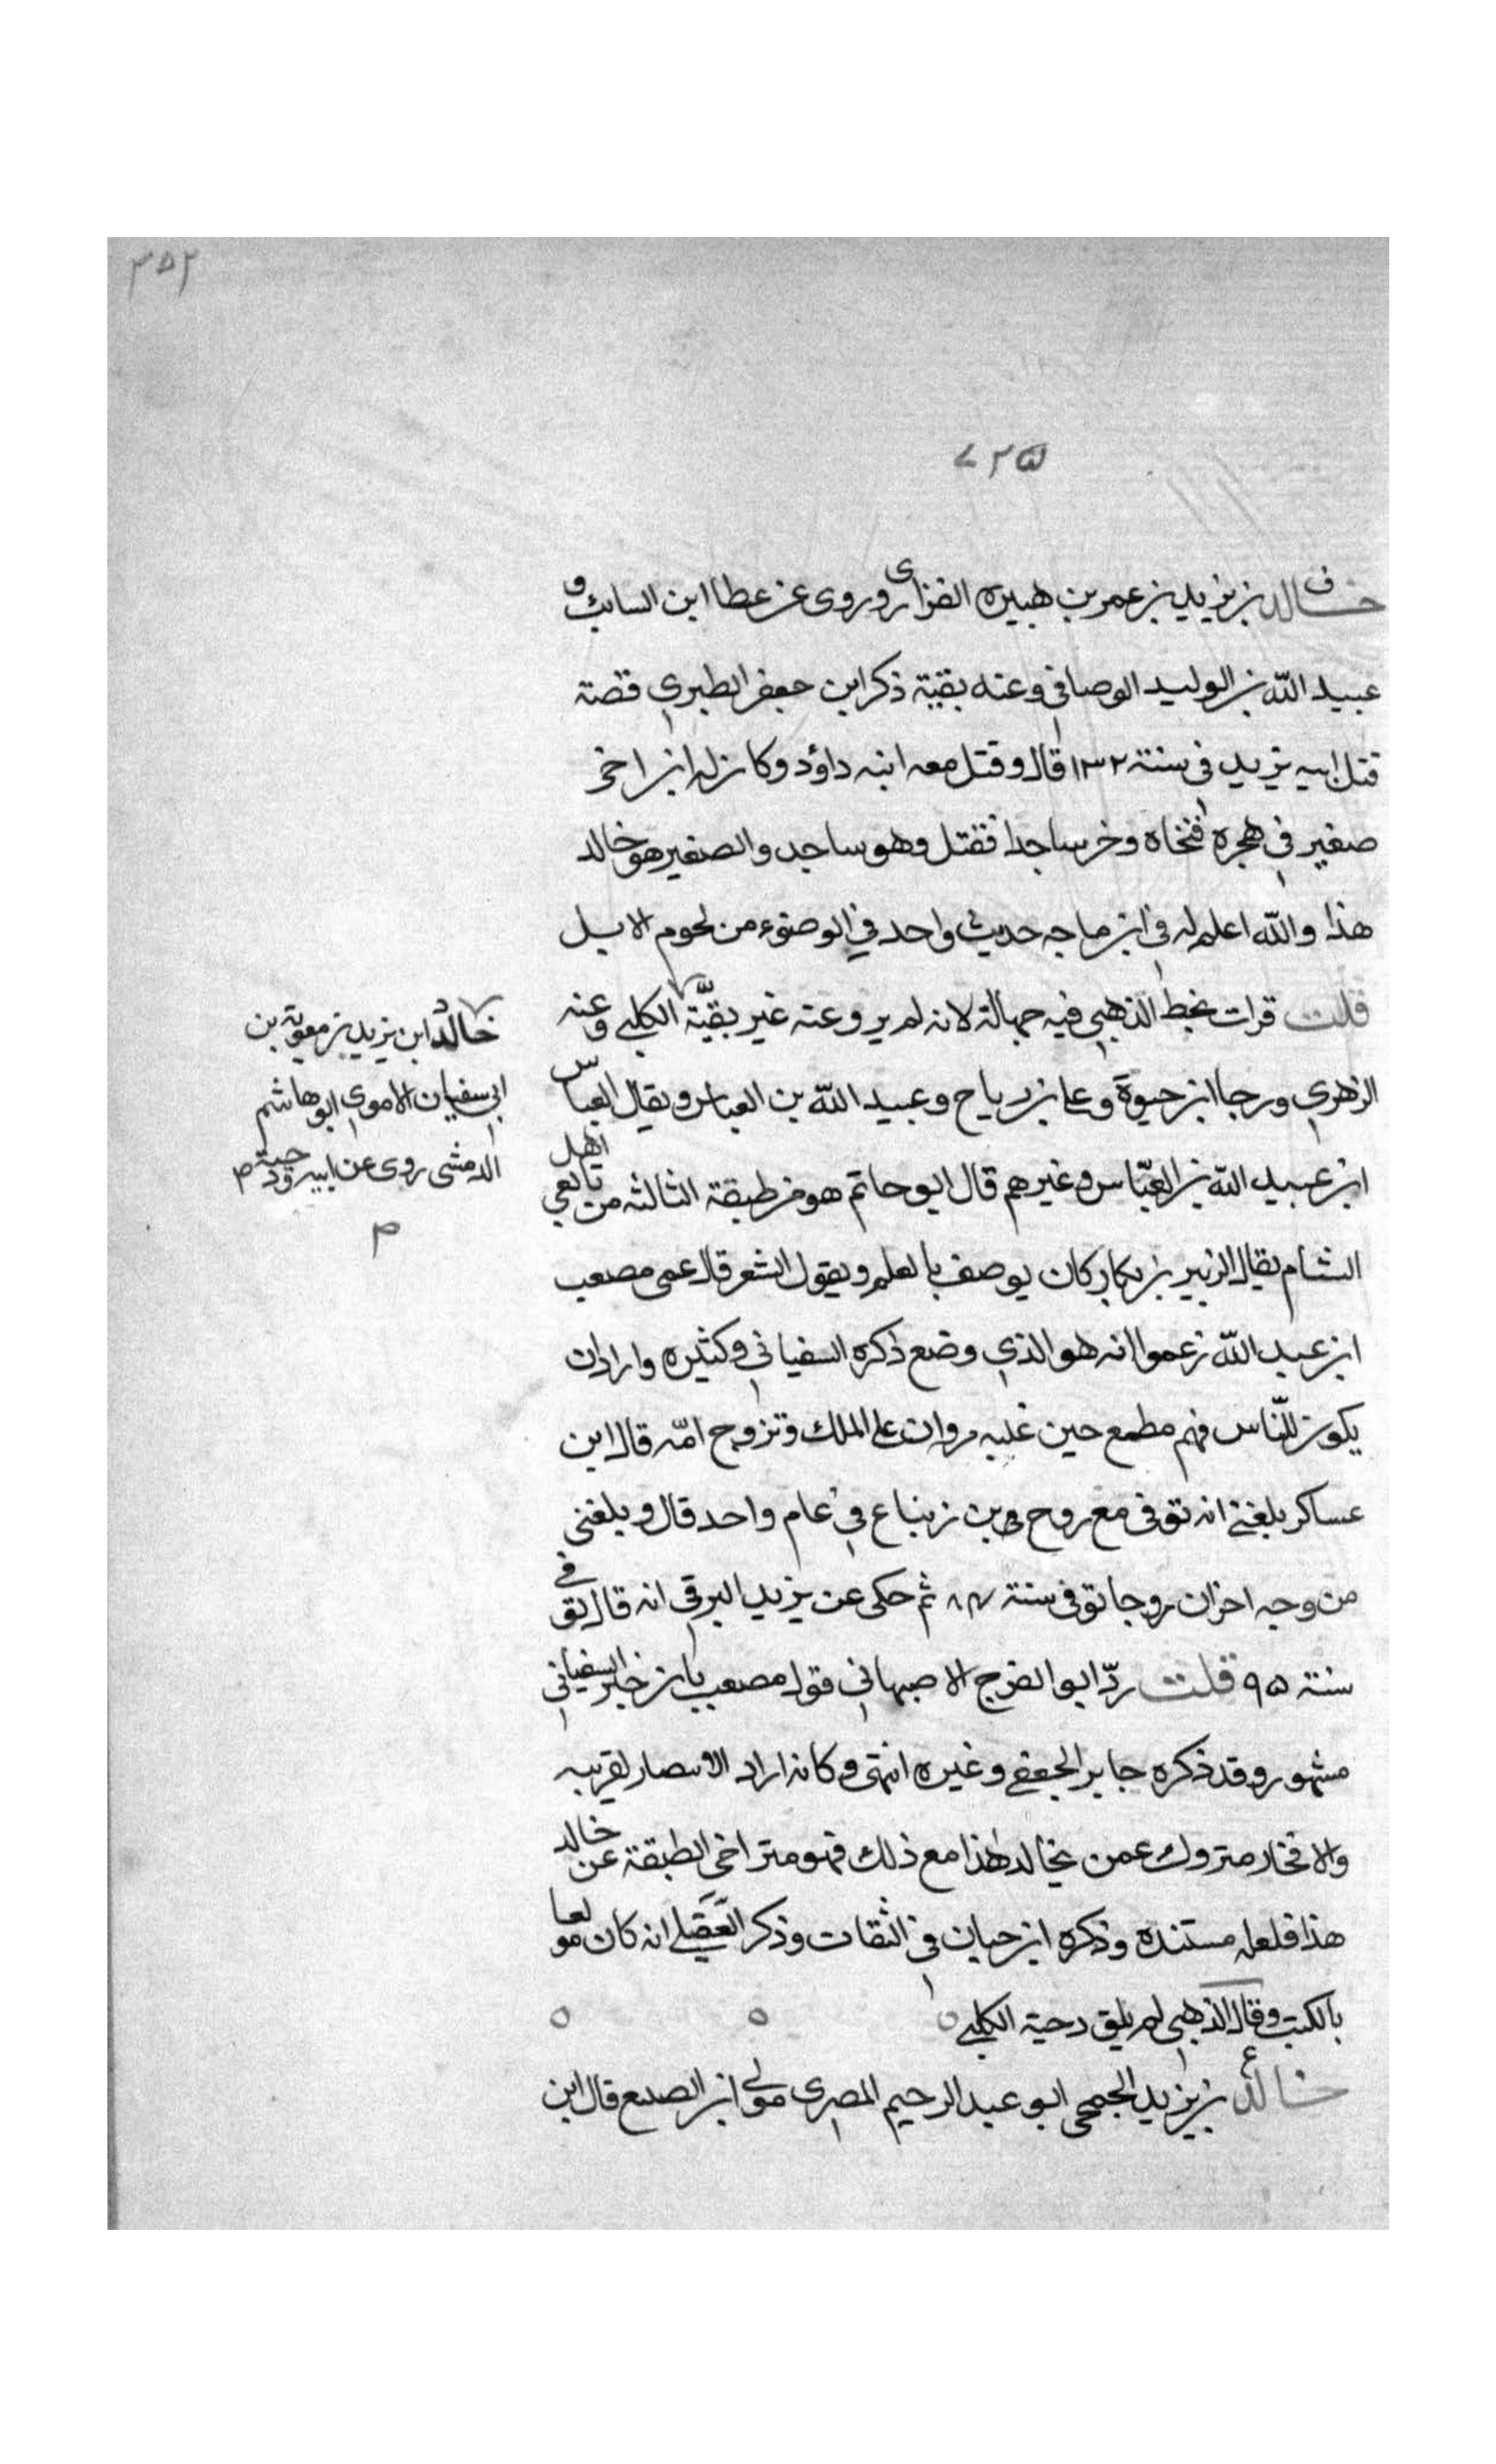 ٣٥٢
٧٢٥
خالد بن يزيد بن عمر بن هبيره الفزارى وروى عن عطا ابن السائب و
عبيد الله بن الوليد الوصافي وعنه بقية ذكر ابن جعفر الطبري قصة
قتل ابيه يزيد في سنة ١٣٢ قال وقتل معه ابنه داؤد وكان له ابن اخر
صغير في هجره فنحاه وخر ساجدا فقتل وهو ساجد والصغير هو خالد
هذا والله اعلم له في ابن ماجه حديث واحد في الوضوء من لحوم الابل
قلت قرات بخط الذهبي فيه جهالة لانه لم يرو عنه غير بقيّة الكلبي وعنه
الزهري ورجا ابن حيوة وعلي بن رباح وعبيد الله بن العباس ويقال العباس
ابن عبيد الله بن العبّاس وغيرهم قال ابو حاتم هو من طبقة الثالثه من تابعي اهل
الشام يقال الزبير بن بكار كان يوصف بالعلم ويقول الشعر قال عمى مصعب
ابن عبد الله زعموا انه هو الذي وضع ذكره السفياني وكثيره واراد ان
يكون للنّاس فهم مطمع حين غلبه مروان على الملك وتزوج امّه قال ابن
عساكر بلغني انه توفى مع روح بن زنباع في عام واحد قال وبلغنى
من وجه اخر ان روحا توفى سنة ٨٤ ثم حكى عن يزيد البرقي انه قال توفي
سنة ٩٥ قلت ردّ ابو الفرج الاصبهاني قول مصعب بان خبر السفياني
مشهور وقد ذكره جابر الجعفي وغيره انتهى وكانه اراد الانتصار لقريبه
والافخار متروك عمن يخالد هذا مع ذلك فهو متراخي الطبقة عن خالد
هذا فلعله مستنده وذكره ابن حبان في الثقات وذكر العقيلي انه كان مولعا
بالكتب وقال الذهبي لم يلق دحية الكلبي
خالد بن يزيد الجمحى ابو عبد الرحيم المصرى مولى ابن الصبيع قال ابن
خالد ابن يزيد بن معوية بن
ابي سفيان الاموى ابو هاشم
الدمشى روى عن ابيه ودحية